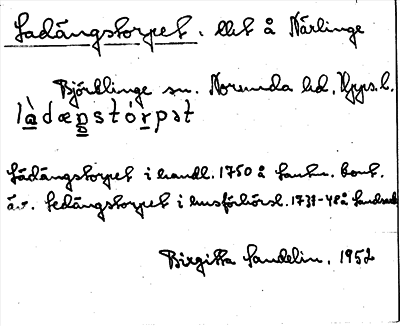 Ladängstorpet. llt å Närlinge
Björklinge sn. Norunda hd, Upps. l.
làdæŋstórpət
Ladängstorpet i handl. 1750 å Lantm. kont.
äv. Ledängstorpet i husförhörsl. 1738-48 å Landsark
Birgitta Sundelin, 1952